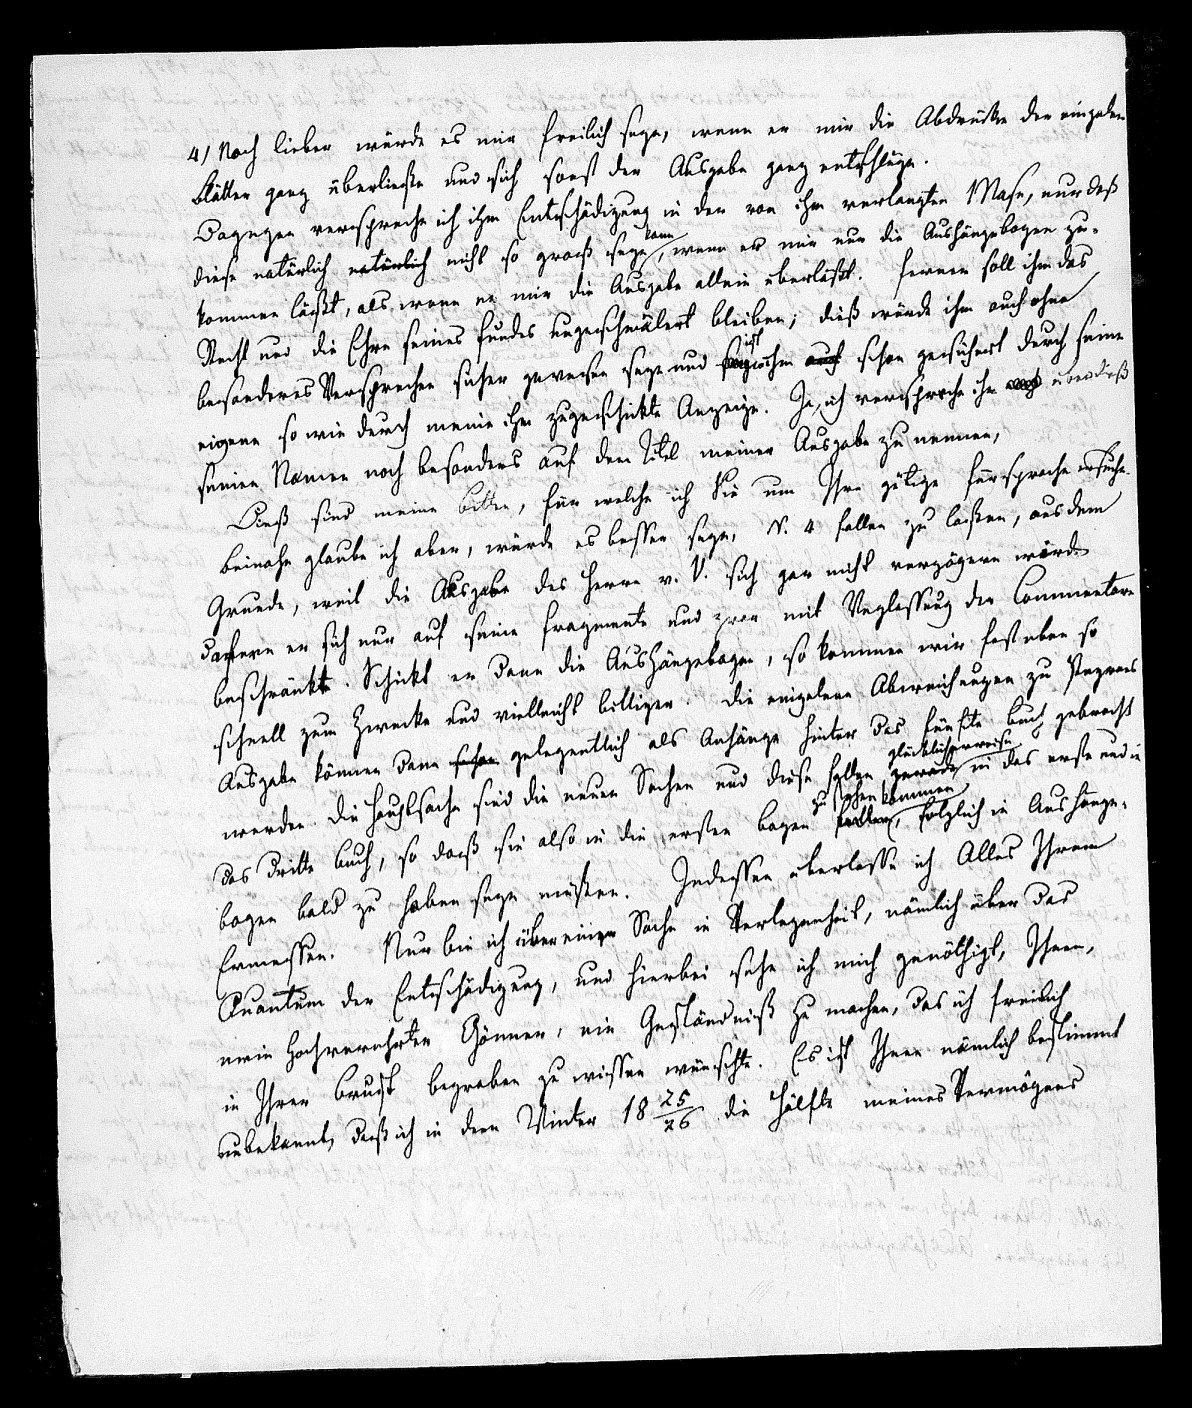 4) Noch lieber würde es mir freilich seyn, wenn er mir die Abdrücke der einzelnen
Blätter ganz überließe und sich sonst der Ausgabe ganz entschlüge.
Dagegen verspreche ich ihm Entschädigung in der von ihm verlangten Mase, nur daß
diese natürlich natürlich nicht so groß seyn kann, wenn er mir nur die Aushängebogen zu-
kommen läßt, als wenn er mir die Ausgabe allein überläßt. Ferner soll ihm das
Recht und die Ehre seines Fundes ungeschmälert bleiben; dieß würde ihm auch ohne
besonderes Versprechen sicher gewesen seyn und ist ihm auch schon gesichert durch seine
eigene so wie durch meine ihm zugeschickte Anzeige. Ja, ich verspreche ihm auch überdieß
seinen Namen noch besonders auf dem Titel meiner Ausgabe zu nennen,
Dieß sind meine Bitten, für welche ich Sie um Ihre gütige Fürsprache ersuche.
Beinahe glaube ich aber, würde es besser seyn, N. 4 fallen zu lassen, aus dem
Grunde, weil die Ausgabe des Herrn v. V. sich gar nicht verzögern würde
dafern er sich nur auf seine Fragmente und zwar mit Weglassung der Commentare
beschränkte. Schickt er dann die Aushängebogen, so kommen wir fast eben so
schnell zum Zwecke und vielleicht billiger. Die einzelnen Abweichungen zu Peyrons
Ausgabe können dann schon gelegentlich als Anhänge hinter das fünfte Buch gebracht
werden. Die Hauptsache sind die neuen Sachen und diese fallen gerade glücklicherweise in das erste und in
das dritte Buch, so daß sie also in die ersten Bogen fallen, zu stehen kommen folglich in Aushänge-
bogen bald zu haben seyn müssen. Indessen überlasse ich Alles Ihrem
Ermessen. Nur bin ich über eine Sache in Verlegenheit, nämlich über das
Quantum der Entschädigung, und hierbei sehe ich mich genöthigt, Ihnen,
mein Hochverehrter Gönner, ein Geständniß zu machen, das ich freilich
in Ihrer Brust begraben zu wissen wünschte. Es ist Ihnen nämlich bestimmt
unbekannt, daß ich in dem Winter 18 25/26 die Hälfte meines Vermögens